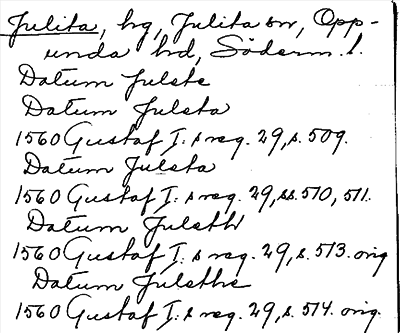 Julita, hg, Julita sn, Opp-
unda hd, Söderm. l.
Datum Julste
Datum Julsta
1560 Gustaf I: s reg. 29, s. 509.
Datum Julsta
1560 Gustaf I: s reg. 29, ss. 510, 511.
Datum Julsth
1560 Gustaf I: s reg. 29, s. 513. orig
Datum Julsthe
1560 Gustaf I: s reg. 29, s. 514. orig.